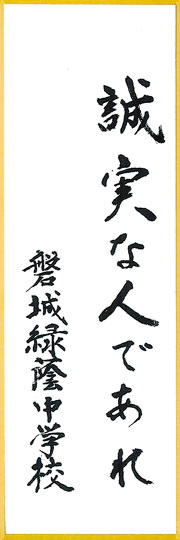 誠実な人であれ
磐城緑蔭中学校